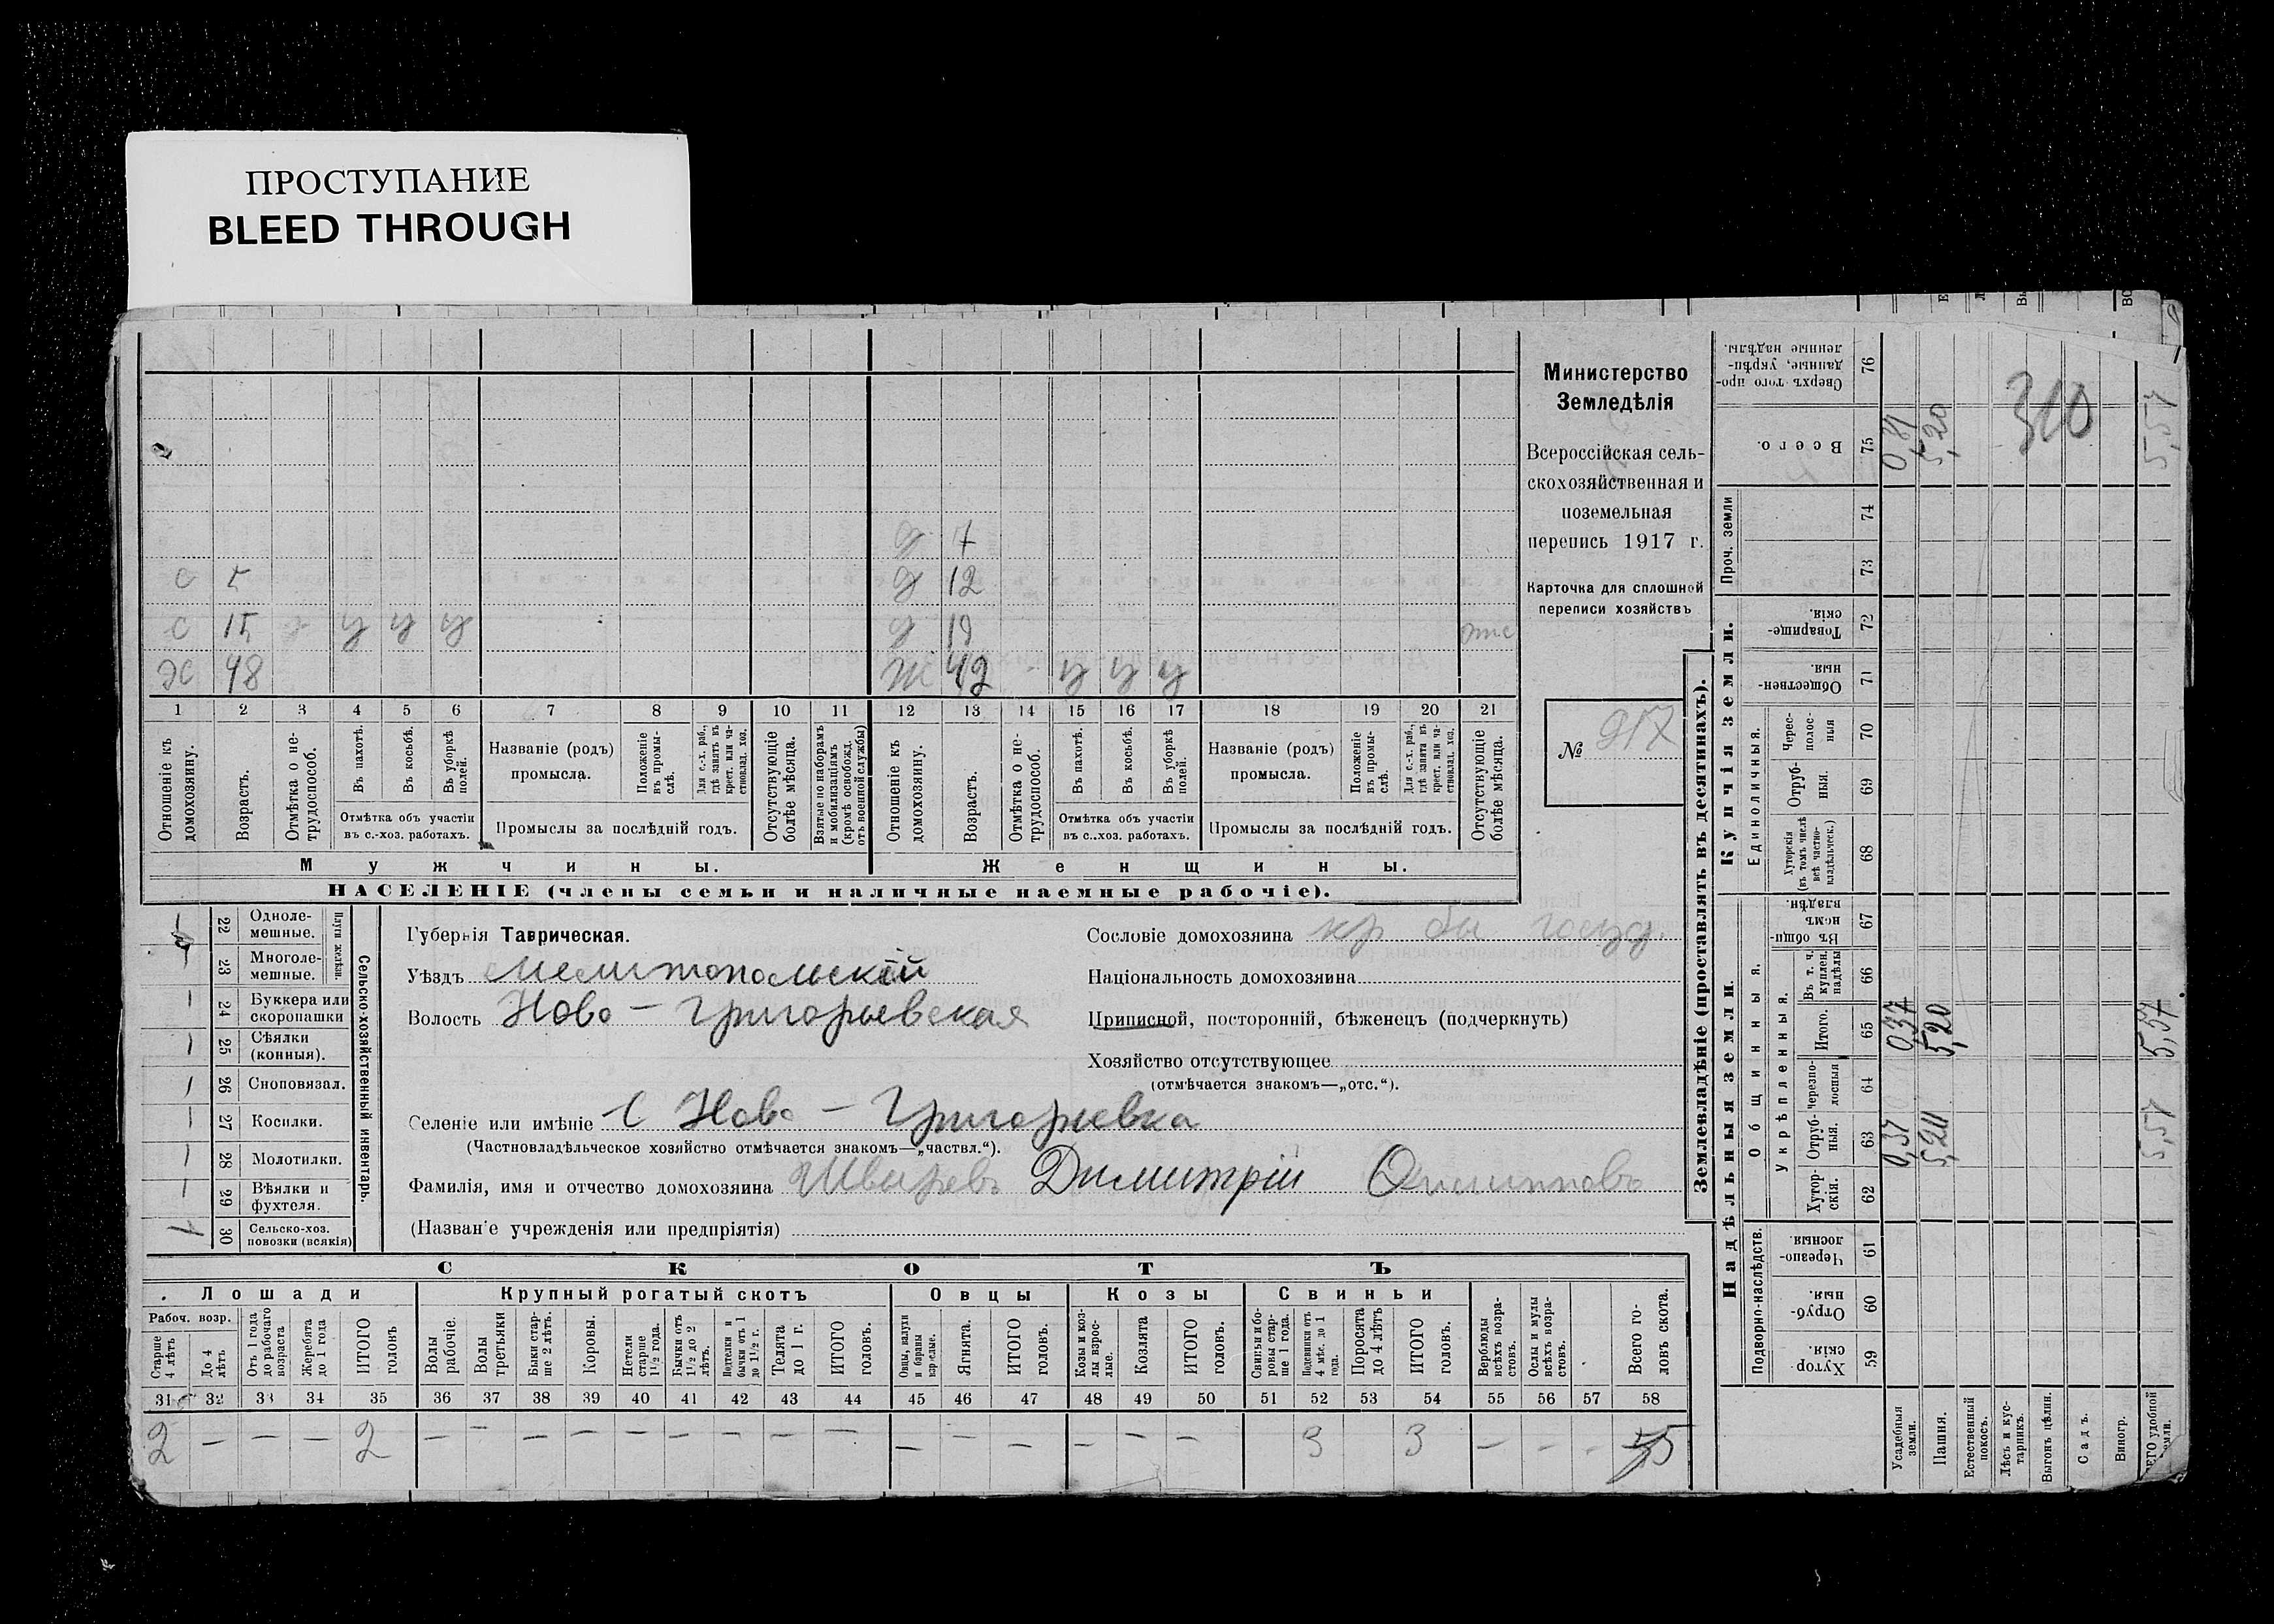 ПРОСТУПАНИЕ
BLEED THROUGH
Министерство
Земледѣлія
Всероссійская сель-
скохозяйственная и
поземельная
перепись 1917 г.
Карточка для сплошной
переписи хозяйствъ
№ 917
д 7
с 5 д 12
с 15 у у у д 19
48 ж 42 у у у
1 2 3 4 5 6 7 8 9 10 11 12 13 14 15 16 17 18 19 20 21
Отношеніе къ домохозяину.
Возрастъ.
Отмѣтка о не-трудоспособ.
Въ пахотѣ.
Въ косьбѣ.
Въ уборкѣ полей.
Отмѣтка объ участіи
въ с.-хоз. работахъ.
Названіе (родъ)
промысла.
Положеніе въ промы-слѣ.
Для с.-х. раб., гдѣ занятъ въ крест. или ча-стновлад. хоз.
Промыслы за послѣдній годъ.
Отсутствующіе болѣе мѣсяца.
Взятые по наборамъ и мобилизаціямъ (кромѣ освобожд. отъ военной службы)
Отношеніе къ домохозяину.
Возрастъ.
Отмѣтка о не-трудоспособ.
Въ пахотѣ.
Въ косьбѣ.
Въ уборкѣ полей.
Отмѣтка объ участіи
въ с..хоз. работахъ.
Названіе (родъ)
промысла.
Положеніе въ промы-слѣ.
Для с.-х. раб., гдѣ занята въ крест. или ча-стновлад. хоз.
Промыслы за послѣдній годъ.
Отсутствующіе болѣе мѣсяца.
Мужчины. Женщины.
НАСЕЛЕНІЕ (члены семьи и наличные наемные рабочіе).
Сельско-хозяйственный инвентарь.
Плуги желѣзн.
22 Одноле-мешные.
23 Многоле-мешные.
24 Буккера или скоропашки
25 Сѣялки (конныя).
26 Сноповязал.
27 Косилки.
28 Молотилки.
29 Вѣялки и фухтеля.
30 Сельско-хоз. повозки (всякія)
Губернія Таврическая.
Уѣздъ Мелитопольскій
Волость Ново-Григорьевская
Селеніе или имѣніе с Ново-Григорьевка
(Частновладѣльческое хозяйство отмѣчается знакомъ—„частвл.“).
Фамилія, имя и отчество домохозяина Димитрій
(Назван'е учрежденія или предпріятія)
Сословіе домохозяина кр бы госуд.
Національность домохозяина
Приписной, посторонній, бѣженецъ (подчеркнуть)
Хозяйство отсутствующее
(отмѣчается знакомъ—„отс.“).
СКОТЪ
Лошади Крупный рогатый скотъ Овцы Козы Свиньи
Рабоч. возр.
Старше 4 лѣтъ
До 4 лѣтъ
Отъ 1 года до рабочаго возраста
Жеребята до 1 года
ИТОГО головъ
Волы рабочіе.
Волы третьяки
Быки стар-ше 2 лѣтъ.
Коровы.
Нетели старше 1½ года.
Бычки отъ 1½ до 2 лѣтъ.
Подтелки и бычки отъ 1 до 1½ г.
Телята до 1 г.
ИТОГО головъ.
Овцы, валухи и бараны взрослые.
Ягнята.
ИТОГО головъ.
Козы и коз-лы взрос-лые.
Козлята
ИТОГО головъ.
Свиньи и бо-ровы стар-ше 1 года.
Подсвинки отъ 4 мѣс. до 1 года.
Поросята до 4 лѣтъ
ИТОГО головъ.
Верблюды всѣхъ возра-стовъ.
Ослы и мулы всѣхъ возра-стовъ.
Всего го-ловъ скота.
31 32 33 34 35 36 37 38 39 40 41 42 43 44 45 46 47 48 49 50 51 52 53 54 55 56 57 58
2 — — — 2 — — — — — — — — — — — — — — — 3 3 — — - 5
Землевладѣніе (проставлять въ десятинахъ).
Надѣльныя земли. Купчія земли. Проч. земли
Подворно-наслѣдств. Общинныя. Единоличныя.
Укрѣпленныя.
59 Хутор-скія.
60 Отруб-ныя.
61 Черезпо-лосныя.
62 Хутор-скія.
63 Отруб-ныя.
64 Черезпо-лосныя
65 Итого.
66 Въ т. ч. куплен. надѣлы
67 Въ общи-нномъ владѣн.
68 Хуторскія (въ томъ числѣ всѣ частно-владѣльческ.)
69 Отруб-ныя.
70 Черес-полос-ныя
71 Обществен-ныя.
72 Товарище-скія.
73
74
75 Всего.
76 Сверхъ того про-данные, укрѣп-ленные надѣлы.
Усадебныя земли. 0,37 0,37
Пашня. 5,20 5,20 5,20
Естественный покосъ.
Лѣсъ и кус-тарникъ.
Выгонъ цѣлин.
Садъ.
Виногр.
удобной земли. 5,57 5,57 5,57
310